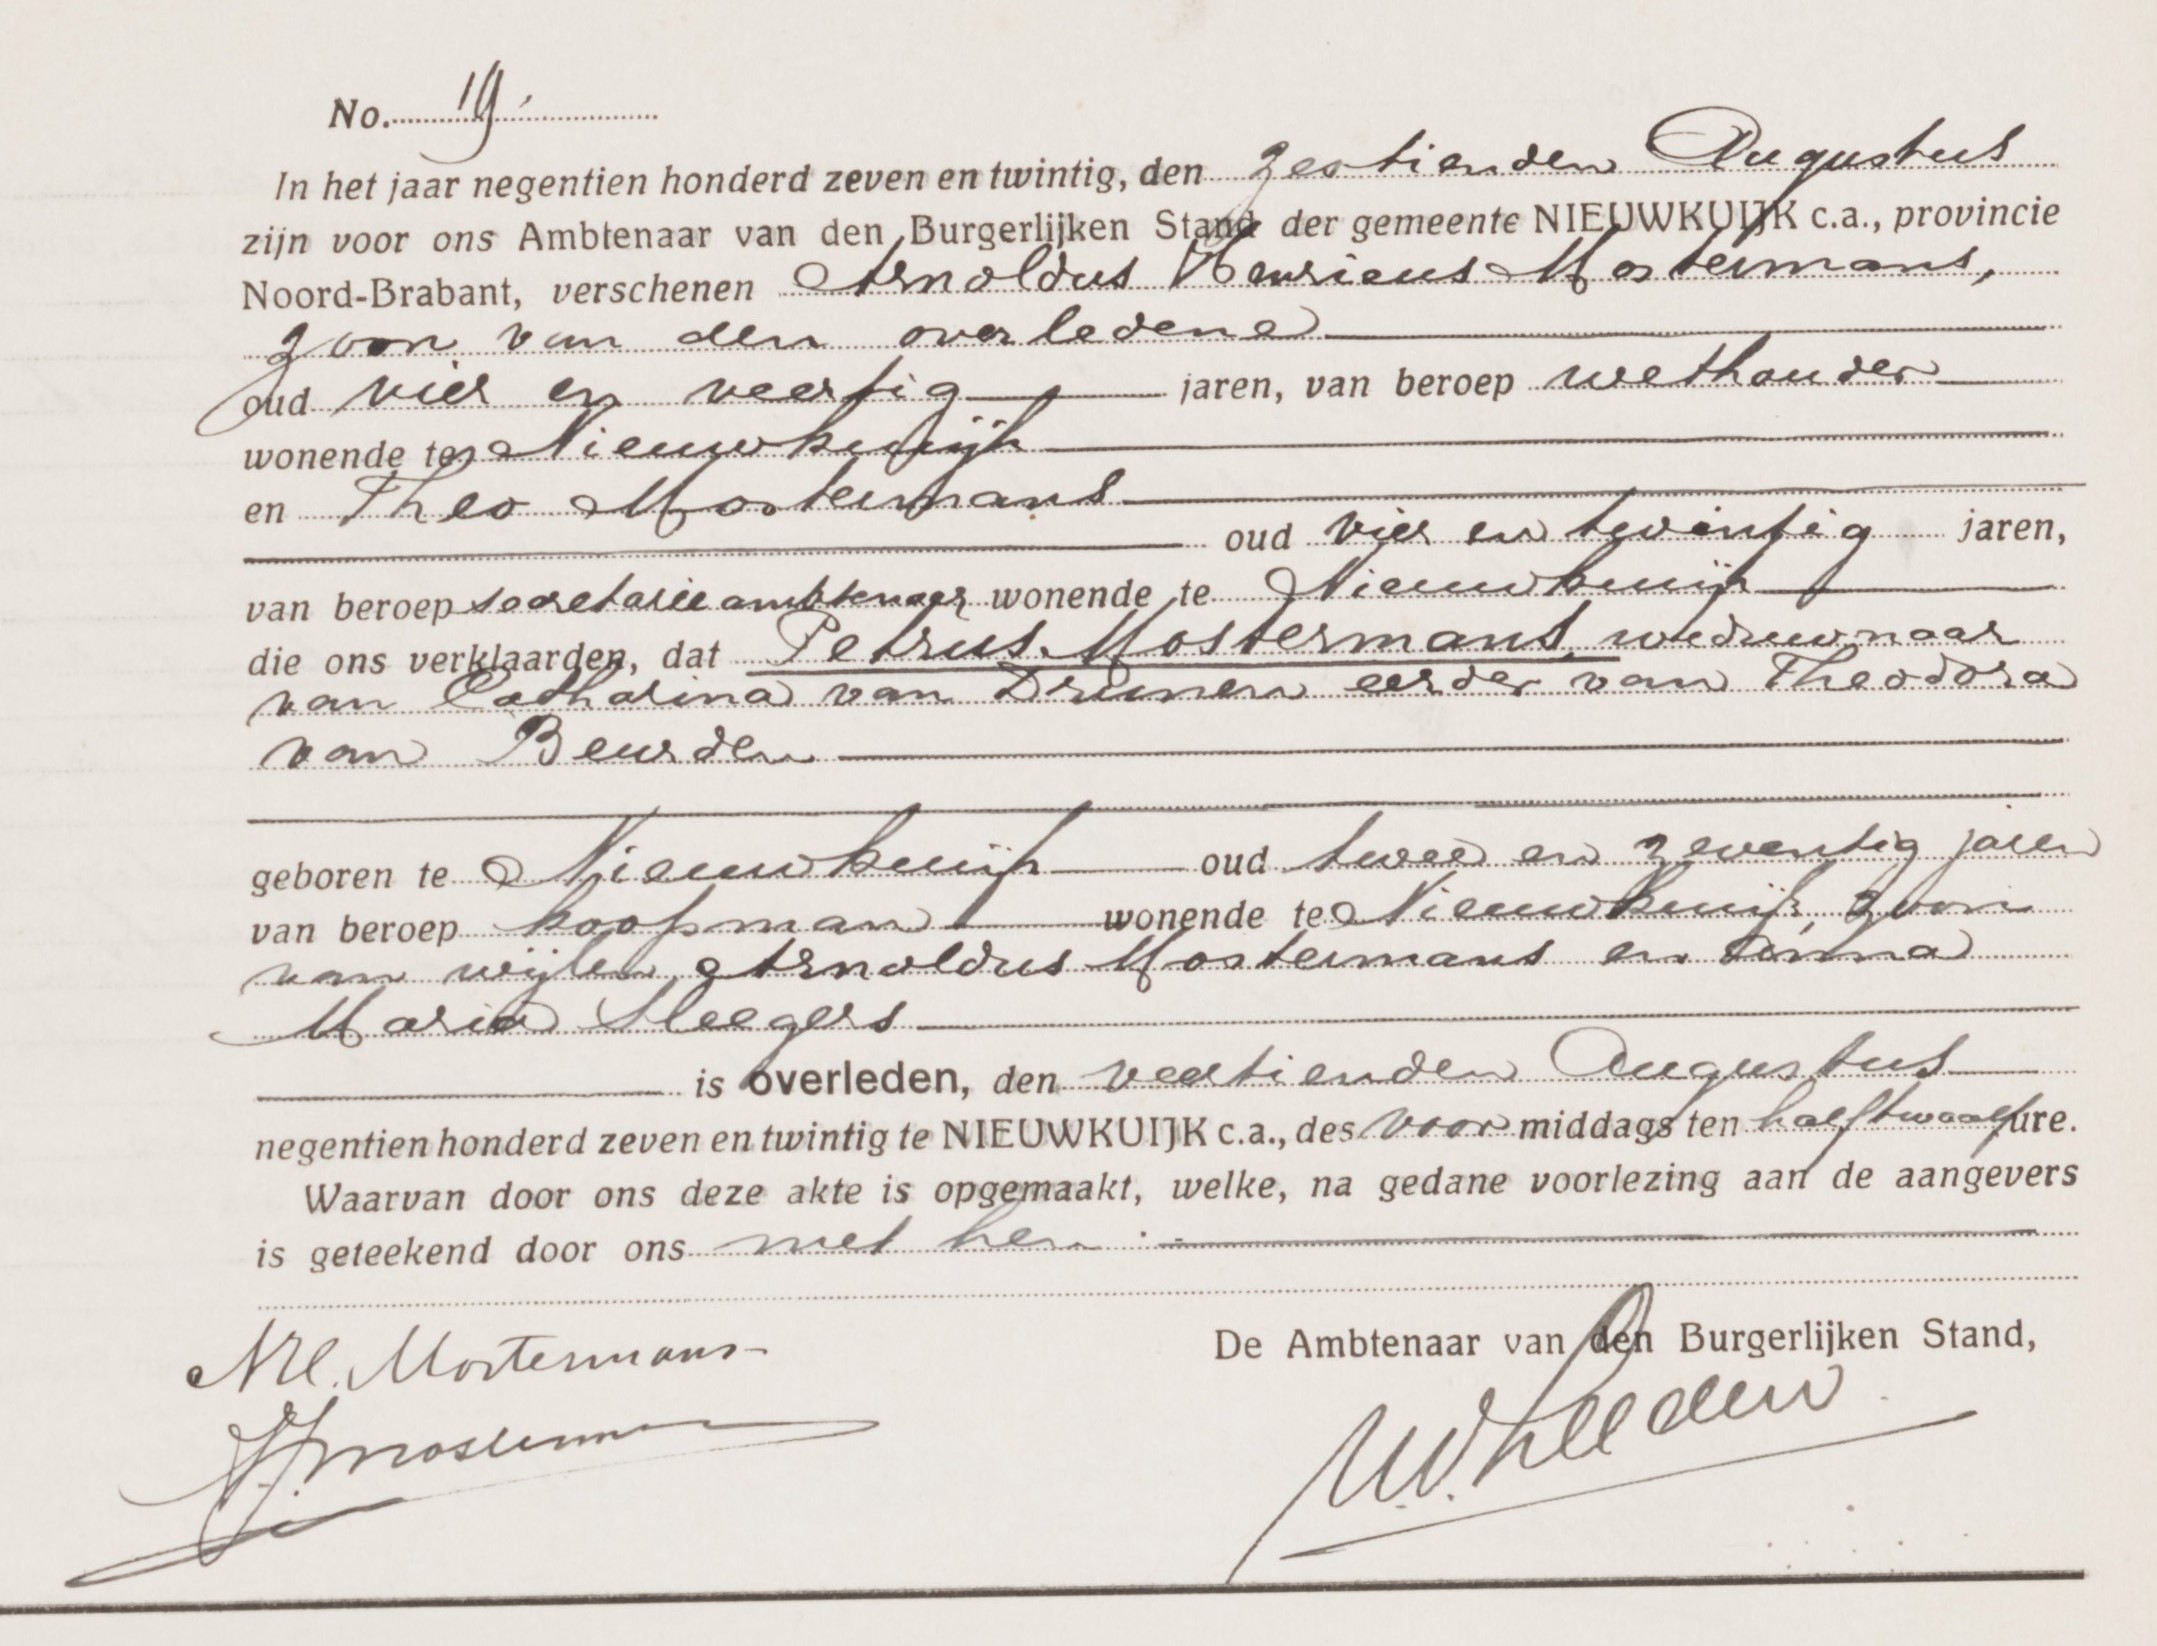 No. 19.
In het jaar negentien honderd zeven en twintig, den zestienden Augustus
zijn voor ons Ambtenaar van den Burgerlijken Stand der gemeente NIEUWKUIJK c.a., provincie
Noord-Brabant, verschenen Arnoldus Henricus Mostermans,
zoon van den overledene
oud vier en veertig jaren, van beroep wethouder
wonende te Nieuwkuijk
en Theo Mostermans
oud vier en twintig jaren,
van beroep secretarieambtenaar wonende te Nieuwkuijk
die ons verklaarden, dat Petrus Mostermans, weduwnaar
van Catharina van Drunen eerder van Theodora
van Beurden
geboren te Nieuwkuijk oud twee en zeventig jaren
van beroep koopman wonende te Nieuwkuijk, zoon
van wijlen Arnoldus Mostermans en Anna
Maria Sleegers
is overleden, den veertienden Augustus
negentien honderd zeven en twintig te NIEUWKUIJK c.a., des voor middags ten half twaalf ure.
Waarvan door ons deze akte is opgemaakt, welke, na gedane voorlezing aan de aangevers
is geteekend door ons met hen
De Ambtenaar van den Burgerlijken Stand,
Mostermans